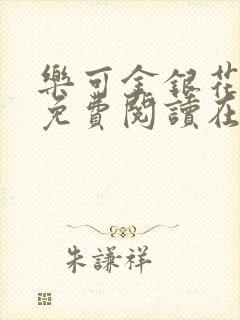 樂可金銀花
免費閱讀在
朱謙祥